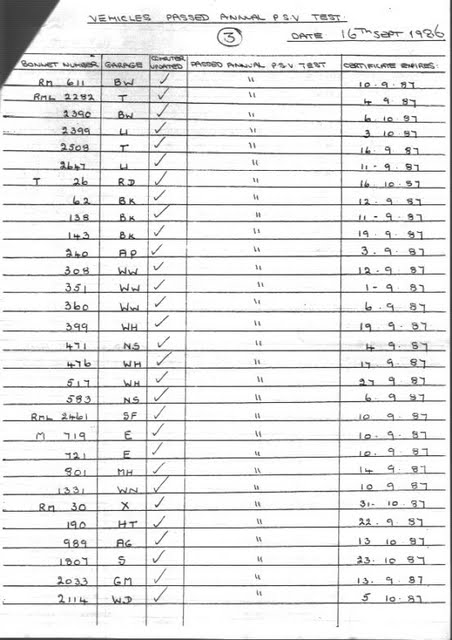 VEHICLES PASSED ANNUAL P.S.V TEST.
3 DATE 16TH SEPT 1986
BONNET NUMBER GARAGE COMPUTER UPDATED PASSED ANNUAL P.S.V TEST CERTIFICATE EXPIRES:
RM 611 BW ✓ " 10. 9. 87
RML 2282 T ✓ " 4 9. 87
2390 BW ✓ " 6 10. 87
2399 LI ✓ " 3 10. 87
2508 T ✓ " 16. 9. 87
2647 LI ✓ " 11-9. 87
T 26 RD ✓ " 16. 10. 87
62 BK ✓ " 12. 9. 87
138 BK ✓ " 11-9. 87
143 BK ✓ " 19. 9. 87
240 AP ✓ " 3. 9. 87
308 WW ✓ " 12. 9. 87
351 WW ✓ " 1-9. 87
360 WW ✓ " 6. 9. 87
399 WH ✓ " 19. 9. 87
471 NS ✓ " 4 9. 87
476 WH ✓ " 17. 9. 87
517 WH ✓ " 27 9. 87
583 NS ✓ " 6. 9. 87
RML 2461 SF ✓ " 10 9. 87
M 719 E ✓ " 10. 9. 87
721 E ✓ " 10. 9. 87
801 MH ✓ " 14 9. 87
1331 WN ✓ " 10 9. 87
RM 30 X ✓ " 31. 10. 87
190 HT ✓ " 22. 9. 87
989 AG ✓ " 13 10 87
1807 S ✓ " 23. 10. 87
2033 GM ✓ " 13. 9. 87
2114 WD ✓ " 5 10. 87